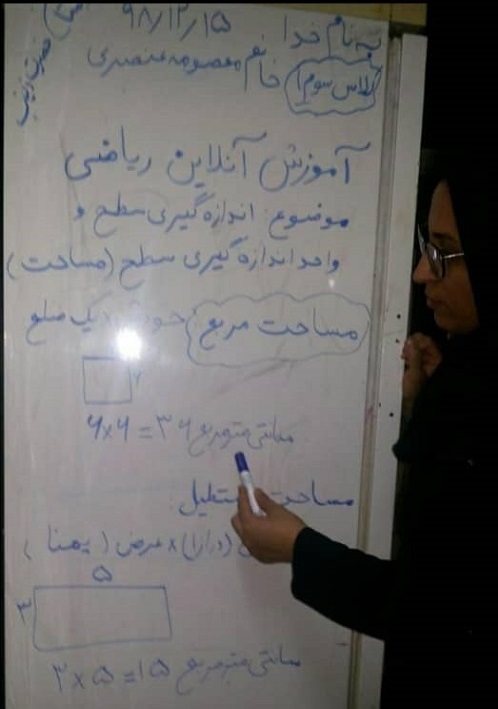 به نام خدا ۹۸/۱۲/۱۵
کلاس سوم ۱ خانم معصومه عنصری
آموزش آنلاین ریاضی
موضوع: اندازه گیری سطح و
واحد اندازه گیری سطح (مساحت)
مساحت مربع یک ضلع
۶×۶=۳۶ سانتی متر مربع
مساحت مستطیل:
(درازا) × عرض (پهنا)
۵
۳
۳×۵=۱۵ سانتی متر مربع